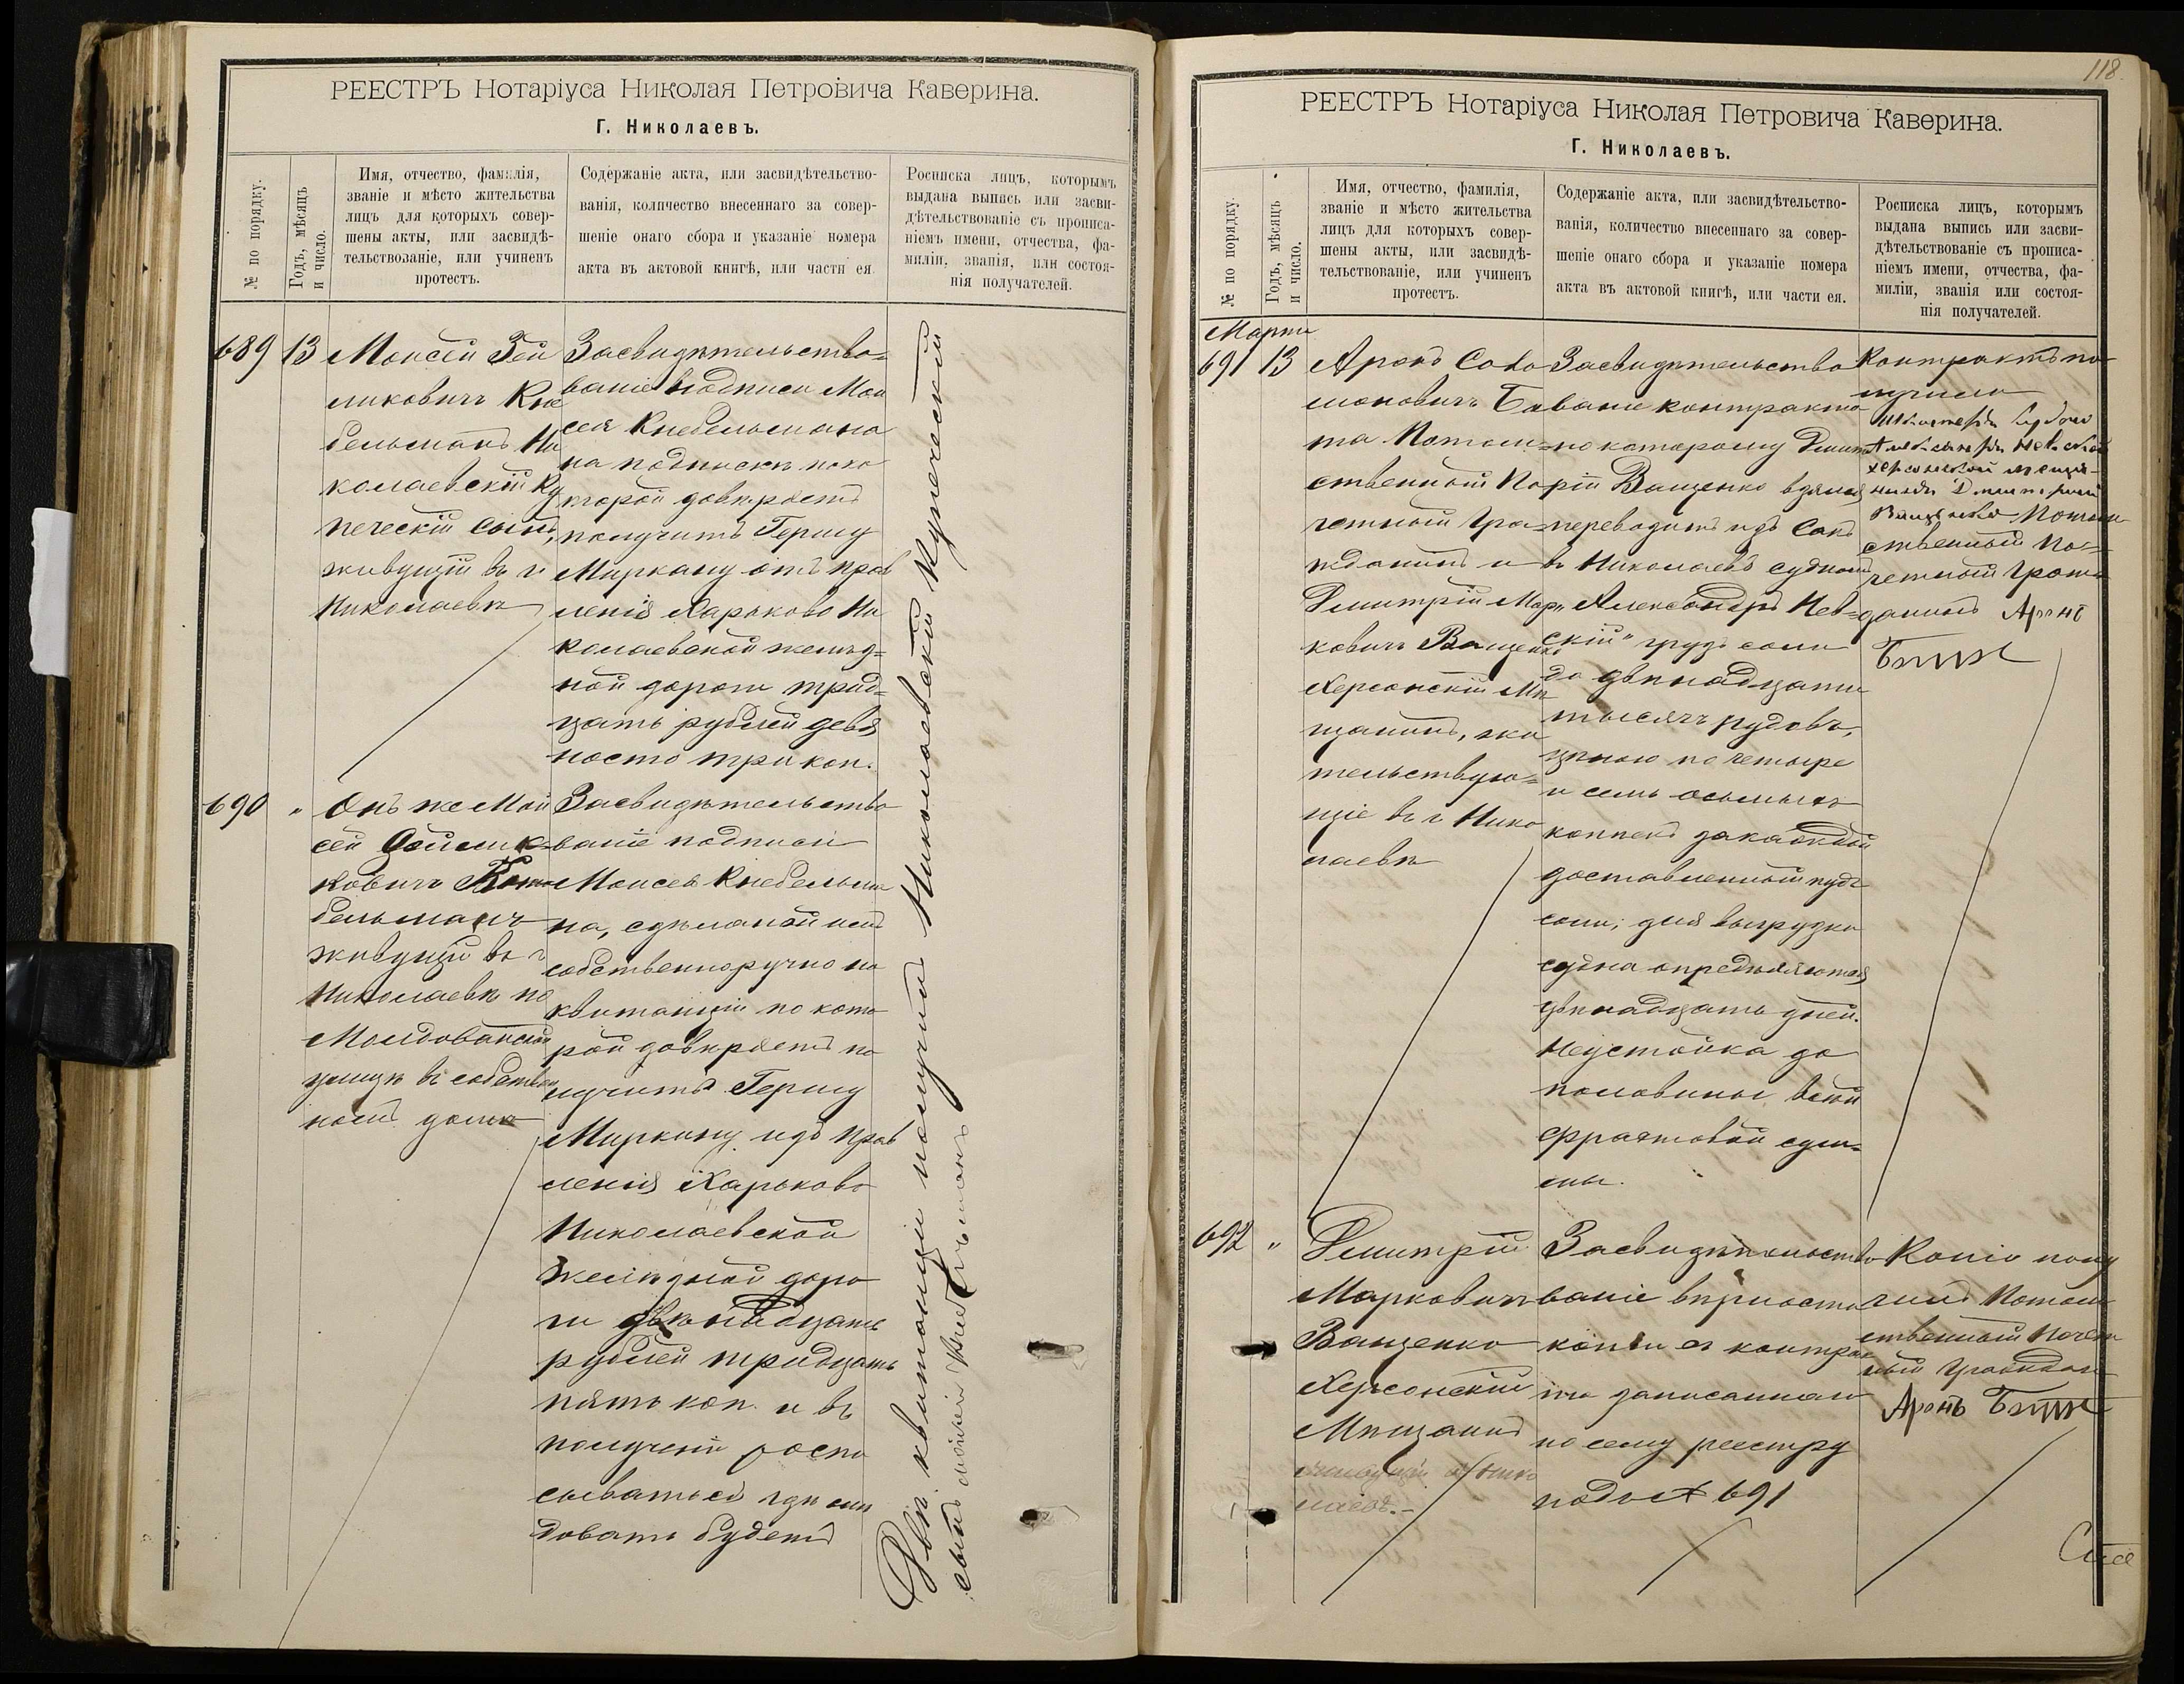 РЕЕСТРЪ Нотаріуса Николая Петровича Каверина.
Г. Николаевъ.
№ по порядку.
Годъ, мѣсяцъ
и число.
Имя, отчество, фамилія,
званіе и мѣсто жительства
лицъ для которыхъ совер-
шены акты, или засвидѣ-
тельствованіе, или учиненъ
протестъ.
Содержаніе акта, или засвидѣтельство-
ванія, количество внесеннаго за совер-
шеніе онаго сбора и указаніе номера
акта въ актовой книгѣ, или части ея.
Росписка лицъ, которымъ
выдана выпись или засви-
дѣтельствованіе съ прописа-
ніемъ имени, отчества, фа-
миліи, званія, или состоя-
нія получателей.
689 13
Моисей Зей
ликовичъ Кне
бельманъ Ни
колаевскій Ку
печескій Сынъ,
живущій въ г.
Николаевѣ
Засвидѣтельство=
ваніе подписи Мои
сея Кнебельмана
на подпискѣ по ко
торой довѣряетъ
получить Гершу
Миркину отъ прав
ленія Харьково Ни
колаевской желѣз=
ной дороги трид=
цать рублей девя
носто три коп.
690 "
Онъ же Мой
сей
ковичъ
бельманъ
живущій въ г
Николаевѣ по
Молдованской
улицѣ въ собствен
номъ домѣ
Засвидѣтельство
ваніе подписи
Моисея Кнебельма
на, сдѣланой имъ
собственноручно на
квитанціи по кото
рой довѣряетъ по
лучить Гершу
Миркину изъ прав
ленія Харьково
Николаевской
желѣзной доро
ги двѣнадцать
рублей тридцать
пять коп. и въ
полученіи роспи
сываться гдѣ слѣ
довать будетъ
Двѣ квитанціи получилъ Николаевскій Купеческій
сынъ Моисей Кнебельманъ
118.
РЕЕСТРЪ Нотаріуса Николая Петровича Каверина.
Г. Николаевъ.
№ по порядку.
Годъ, мѣсяцъ
и число.
Имя, отчество, фамилія,
званіе и мѣсто жительства
лицъ для которыхъ совер-
шены акты, или засвидѣ-
тельствованіе, или учиненъ
протестъ.
Содержаніе акта, или засвидѣтельство-
ванія, количество внесеннаго за совер-
шеніе онаго сбора и указаніе номера
акта въ актовой книгѣ, или части ея.
Росписка лицъ, которымъ
выдана выпись или засви-
дѣтельствованіе съ прописа-
ніемъ имени, отчества, фа-
миліи, званія или состоя-
нія получателей.
Марта
691 13
Аронъ Соло
моновичъ
Потом=
ственный По
четный Гра=
жданинъ и
Дмитрій Мар
ковичъ Ващенко
Херсонскій Мѣ
щанинъ, жи
тельствую=
щіе въ г Нико
лаевѣ
Засвидѣтельство
ваніе контракта
по которому Дмит
рій Ващенко взялся
перевозить изъ Сакъ
въ Николаевъ судномъ
"Александръ Нев=
скій" грузъ соли
до двѣнадцати
тысячъ пудовъ,
цѣною по четыре
и семь осьмыхъ
копѣекъ за каждый
доставленный пудъ
соли; для выгрузки
судна опредѣляются
двѣнадцать дней.
Неустойка до
половины всей
фрахтовой сум=
мы.
Контрактъ по
лучили
Шкиперъ судна
Александръ Невскій
Херсонской мѣща-
нинъ Дмитрий
Ващенко Потом
ственный По=
четный Граж
данинъ Аронъ
692 "
Дмитрій
Марковичъ
Ващенко
Херсонскій
Мѣщанинъ
живущій въ Нико
лаевѣ.-
Засвидѣтельство
ваніе вѣрности
копіи съ контрак
та записаннаго
по сему реестру
подъ № 691
Копію полу
чилъ Потом
ственный Почет
ный Гражданъ
Аронъ